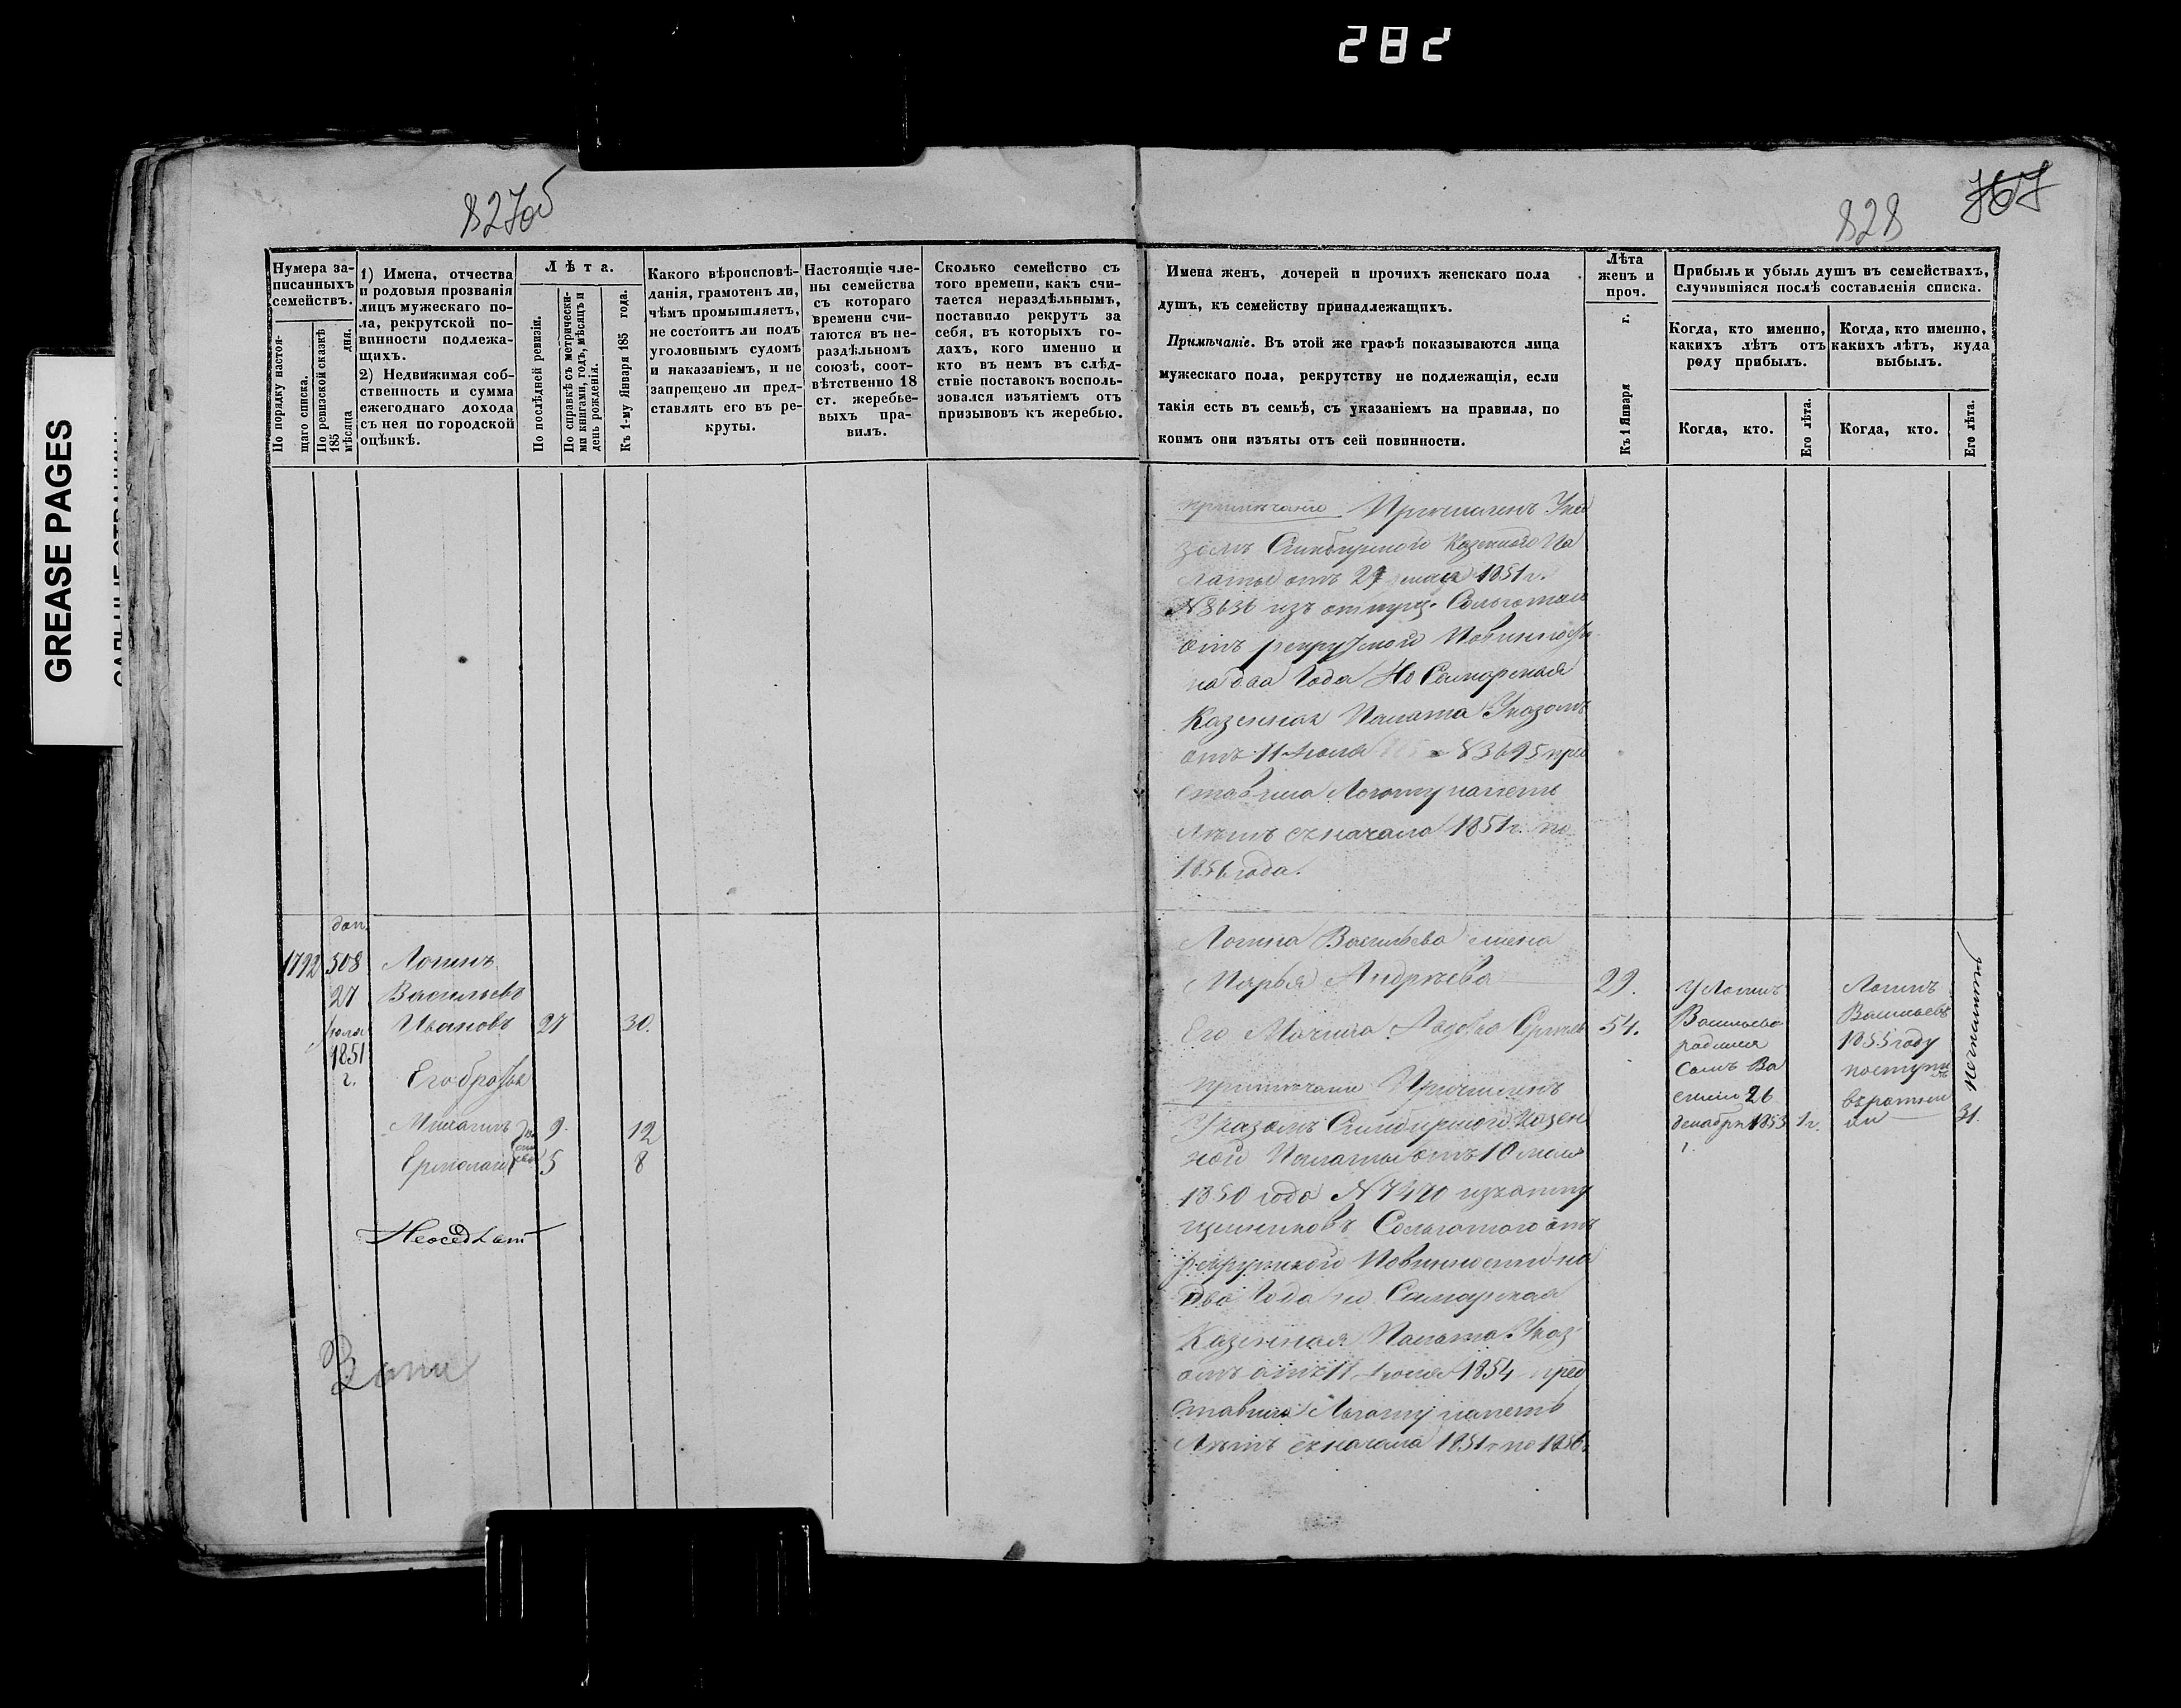 282
GREASE PAGES
827об
828
767
Нумера за-
писанныхъ
семействъ.
По порядку настоя-
щаго списка.
По ревизской сказкѣ
185 мѣсяца дня.
1) Имена, отчества
и родовыя прозванія
лицъ мужескаго по-
ла, рекрутской по-
винности подлежа-
щихъ.
2) Недвижимая соб-
ственность и сумма
ежегоднаго дохода
съ нея по городской
оцѣнкѣ.
Лѣта.
По послѣдней ревизіи.
По справкѣ съ метрически-
ми книгами, годъ, мѣсяцъ и
день рожденія.
Къ 1-му Января 185 года.
Какого вѣроисповѣ-
данія, грамотенъ ли,
чѣмъ промышляетъ,
не состоитъ ли подъ
уголовнымъ судомъ
и наказаніемъ, и не
запрещено ли пред-
ставлять его въ ре-
круты.
Настоящіе чле-
ны семейства
съ котораго
времени счи-
таются въ не-
раздѣльномъ
союзѣ, соот-
вѣтственно 18
ст. жеребье-
выхъ пра-
вилъ.
Сколько семейство съ
того времени, какъ счи-
тается нераздѣльнымъ,
поставило рекрутъ за
себя, въ которыхъ го-
дахъ, кого именно и
кто въ немъ въ слѣд-
ствіе поставокъ восполь-
зовался изъятіемъ отъ
призывовъ къ жеребью.
Имена женъ, дочерей и прочихъ женскаго пола
душъ, къ семейству принадлежащихъ.
Примѣчаніе. Въ этой же графѣ показываются лица
мужескаго пола, рекрутству не подлежащія, если
такія есть въ семьѣ, съ указаніемъ на правила, по
коимъ они изъяты отъ сей повинности.
Лѣта
женъ и
проч.
Къ 1 Января г.
Прибыль и убыль душъ въ семействахъ,
случившіяся послѣ составленія списка.
Когда, кто именно,
какихъ лѣтъ отъ
роду прибылъ.
Когда, кто именно,
какихъ лѣтъ, куда
выбылъ.
Когда, кто.
Его лѣта.
Когда, кто.
Его лѣта.
примѣчаніе Причисленъ Ука
зомъ Симбирской Казенной Па
латы отъ 27 мая 1851 г.
N 8636 изъ отпущ.
отъ рекрутской Повинности
на два Года Но Самарская
Казенная Палата Указомъ
отъ 11 Июля пред
ставила Льготу на пять
Лѣтъ съ начала 1851 г. по
1856 года.
доп.
1792 508 Логинъ
27 Васильевъ
Июля Ивановъ 27 30.
1851
г. Его братья
9. 12
5 8
Неоседлат
Логина Васильева жена
Марья Андрѣева 29.
Его Мачиха 54.
примѣчаніе Причисленъ
Указомъ Симбирской Казен
ной Палаты отъ 10 мая
1850 года N 7420 изъ отпу
щенниковъ Сольготою отъ
рекрутской Повинности на
Два Года но Самарская
Казенная Палата Указ
омъ отъ 11 Июля 1854 пред
ставила Льготу на пять
Лѣтъ съ начала 1851 г. по 1856.
У Логина
Васильева
родился
Сынъ Ва
силий 26
декабря 1853 1 г.
г.
Логинъ
Васильевъ
1855 году
поступилъ
въ ратни
ки 31.